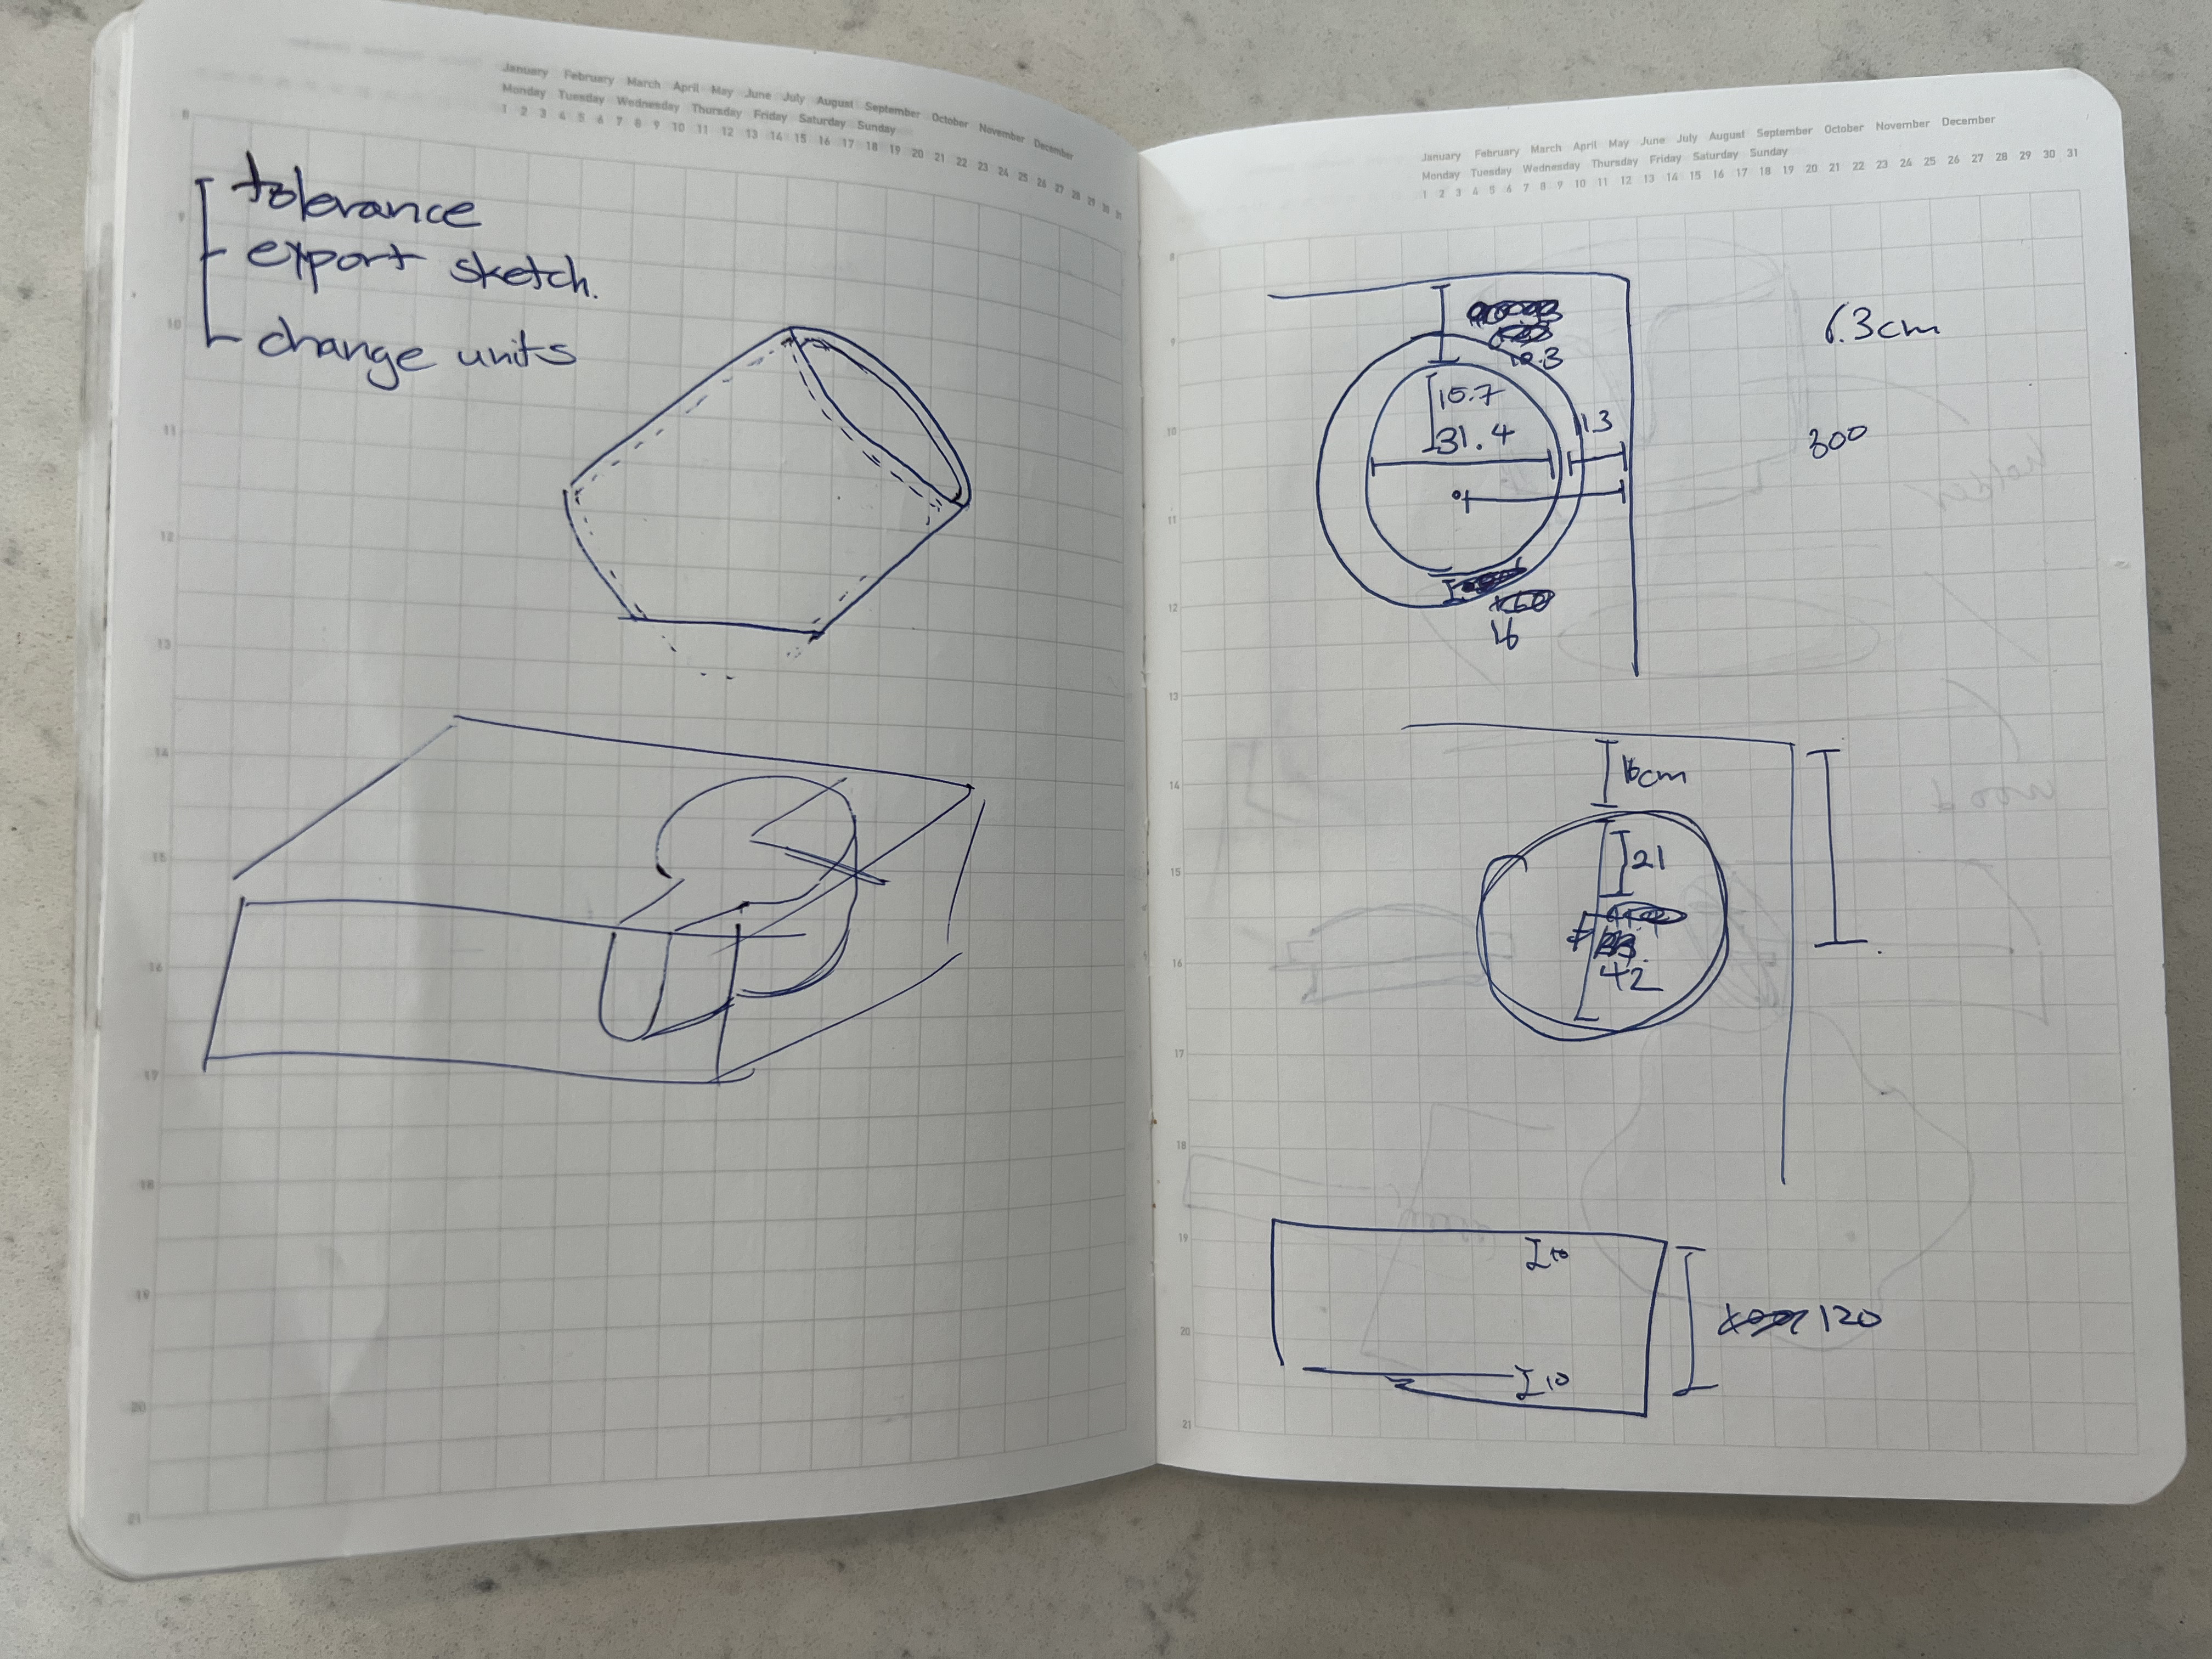 January February March April May June July August September October November December
Monday Tuesday Wednesday Thursday Friday Saturday Sunday
1 2 3 4 5 6 7 8 9 10 11 12 13 14 15 16 17 18 19 20 21 22 23 24 25 26 27 28 29 30 31
8
tolerance
9
export sketch.
10
change units
11
12
13
14
15
16
17
18
19
20
21
January February March April May June July August September October November December
Monday Tuesday Wednesday Thursday Friday Saturday Sunday
1 2 3 4 5 6 7 8 9 10 11 12 13 14 15 16 17 18 19 20 21 22 23 24 25 26 27 28 29 30 31
8
9
15.7
10
31.4
300
11
12
16
13
14
16cm
15
21
16
42
17
18
19
10
20
120
10
21